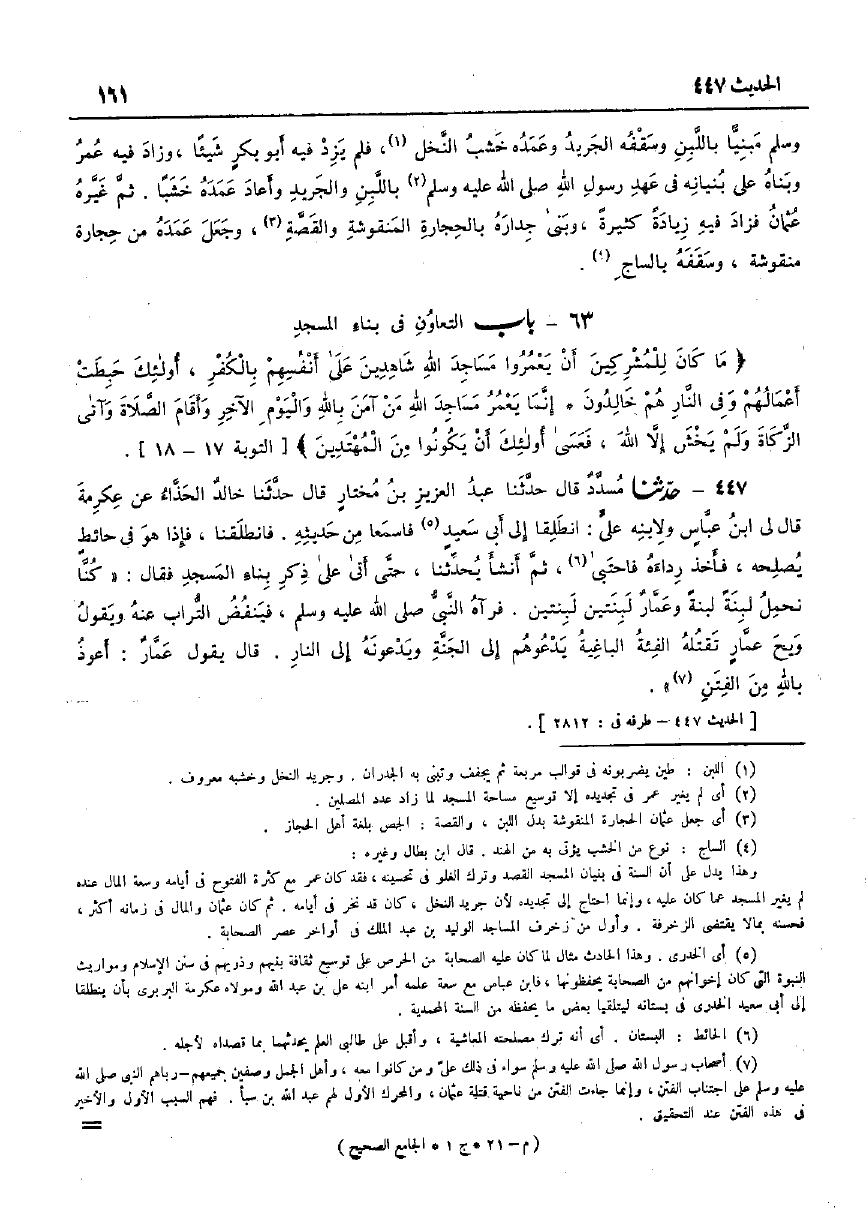 الحديث ٤٤٧
١٦١
وسلم مَبنِيًّا باللَّبِنِ وسَقْفُه الجَريدُ وعَمَدُه خَشبُ النَّخل (١)، فلم يَزِدْ فيه أبو بكرٍ شَيئًا ، وزادَ فيه عُمرُ
وبَناهُ على بُنيانِه فى عَهدِ رسولِ اللهِ صلى الله عليه وسلم (٢) باللَّبِنِ والجَريدِ وأَعادَ عَمَدَهُ خَشَبًا . ثمَّ غَيَّرهُ
عُثمانُ فزادَ فيهِ زِيادَةً كثيرةً ، وبَنىٰ جِدارَهُ بالحِجارةِ المَنقوشةِ والقَصَّةِ (٣) ، وجَعَلَ عَمَدَهُ من حِجارة
منقوشة ، وسَقَفَهُ بالساجِ (٤) .
٦٣ - باب التعاوُنِ فى بناءِ المسجدِ
﴿ مَا كَانَ لِلْمُشْرِكِينَ أَنْ يَعْمُرُوا مَسَاجِدَ اللهِ شَاهِدِينَ عَلَىٰ أَنْفُسِهِمْ بِالْكُفْرِ ، أُولٰئِكَ حَبِطَتْ
أَعْمَالُهُمْ وَفِى النَّارِ هُمْ خَالِدُونَ * إِنَّمَا يَعْمُرُ مَسَاجِدَ اللهِ مَنْ آمَنَ بِاللهِ وَالْيَوْمِ الآخِرِ وَأَقَامَ الصَّلَاةَ وَآتَى
الزَّكَاةَ وَلَمْ يَخْشَ إِلَّا اللهَ ، فَعَسَىٰ أُولٰئِكَ أَنْ يَكُونُوا مِنَ الْمُهْتَدِينَ ﴾ [ التوبة ١٧ - ١٨ ] .
٤٤٧ - حدّثنا مُسدَّدٌ قال حدَّثَنا عبدُ العزيزِ بنُ مُختارٍ قال حدَّثَنا خالدٌ الحَذَّاءُ عن عِكرِمةَ
قال لى ابنُ عبَّاسٍ ولابنِه علىٍّ : انطَلِقا إلى أبى سَعيدٍ (٥) فاسمَعا مِن حَديثِهِ . فانطلَقنا ، فإذا هوَ فى حائطٍ
يُصلِحه ، فأَخذَ رِداءَهُ فاحتَبىٰ (٦) ، ثمَّ أنشأَ يُحدِّثُنا ، حتَّى أتىٰ علىٰ ذِكرِ بناءِ المَسجدِ فقال : « كُنَّا
نحمِلُ لَبِنَةً لَبِنةً وعَمَّارٌ لَبِنَتَينِ لَبِنتَين . فرآهُ النَّبىُّ صلى الله عليه وسلم ، فيَنفُضُ التُّرابَ عنهُ ويَقولُ
وَيحَ عمَّارٍ تَقتُلُهُ الفِئةُ الباغِيةُ يَدْعُوهُم إلى الجَنَّةِ ويَدْعونَهُ إلى النارِ . قال يقولُ عَمَّارٌ : أعوذُ
باللهِ مِنَ الفِتَنِ (٧) » .
[ الحديث ٤٤٧ - طرفه فى : ٢٨١٢ ] .
(١) اللبن : طين يضربونه فى قوالب مربعة ثم يجفف وتبنى به الجدران . وجريد النخل وخشبه معروف .
(٢) أى لم يغير عمر فى تجديده إلا توسيع مساحة المسجد لما زاد عدد المصلين .
(٣) أى جعل عثمان الحجارة المنقوشة بدل اللبن ، والقصة : الجص بلغة أهل الحجاز .
(٤) الساج : نوع من الخشب يؤتى به من الهند . قال ابن بطال وغيره :
وهذا يدل على أن السنة فى بنيان المسجد القصد وترك الغلو فى تحسينه ، فقد كان عمر مع كثرة الفتوح فى أيامه وسعة المال عنده
لم يغير المسجد عما كان عليه ، وإنما احتاج إلى تجديده لأن جريد النخل ، كان قد نخر فى أيامه . ثم كان عثمان والمال فى زمانه أكثر ،
فحسنه بمالا يقتضى الزخرفة . وأول من زخرف المساجد الوليد بن عبد الملك فى أواخر عصر الصحابة .
(٥) أى الخدرى . وهذا الحادث مثال لما كان عليه الصحابة من الحرص على توسيع ثقافة بنيهم وذريهم فى سنن الإسلام ومواريث
النبوة التى كان إخوانهم من الصحابة يحفظونها ، فابن عباس مع سعة علمه أمر ابنه على بن عبد الله ومولاه عكرمة البربرى بأن ينطلقا
إلى أبى سعيد الخدرى فى بستانه ليتلقيا بعض ما يحفظه من السنة المحمدية .
(٦) الحائط : البستان . أى أنه ترك مصلحته المعاشية ، وأقبل على طالبى العلم يحدثهما بما قصداه لأجله .
(٧) أصحاب رسول الله صلى الله عليه وسلم سواء فى ذلك علىّ ومن كانوا معه ، وأهل الجمل وصفين جميعهم-رباهم النبى صلى الله
عليه وسلم على اجتناب الفتن ، وإنما جاءت الفتن من ناحية قتلة عثمان ، والمحرك الأول لهم عبد الله بن سبأ . فهم السبب الأول والأخير
فى هذه الفتن عند التحقيق . =
( م - ٢١ * ج ١ * الجامع الصحيح )